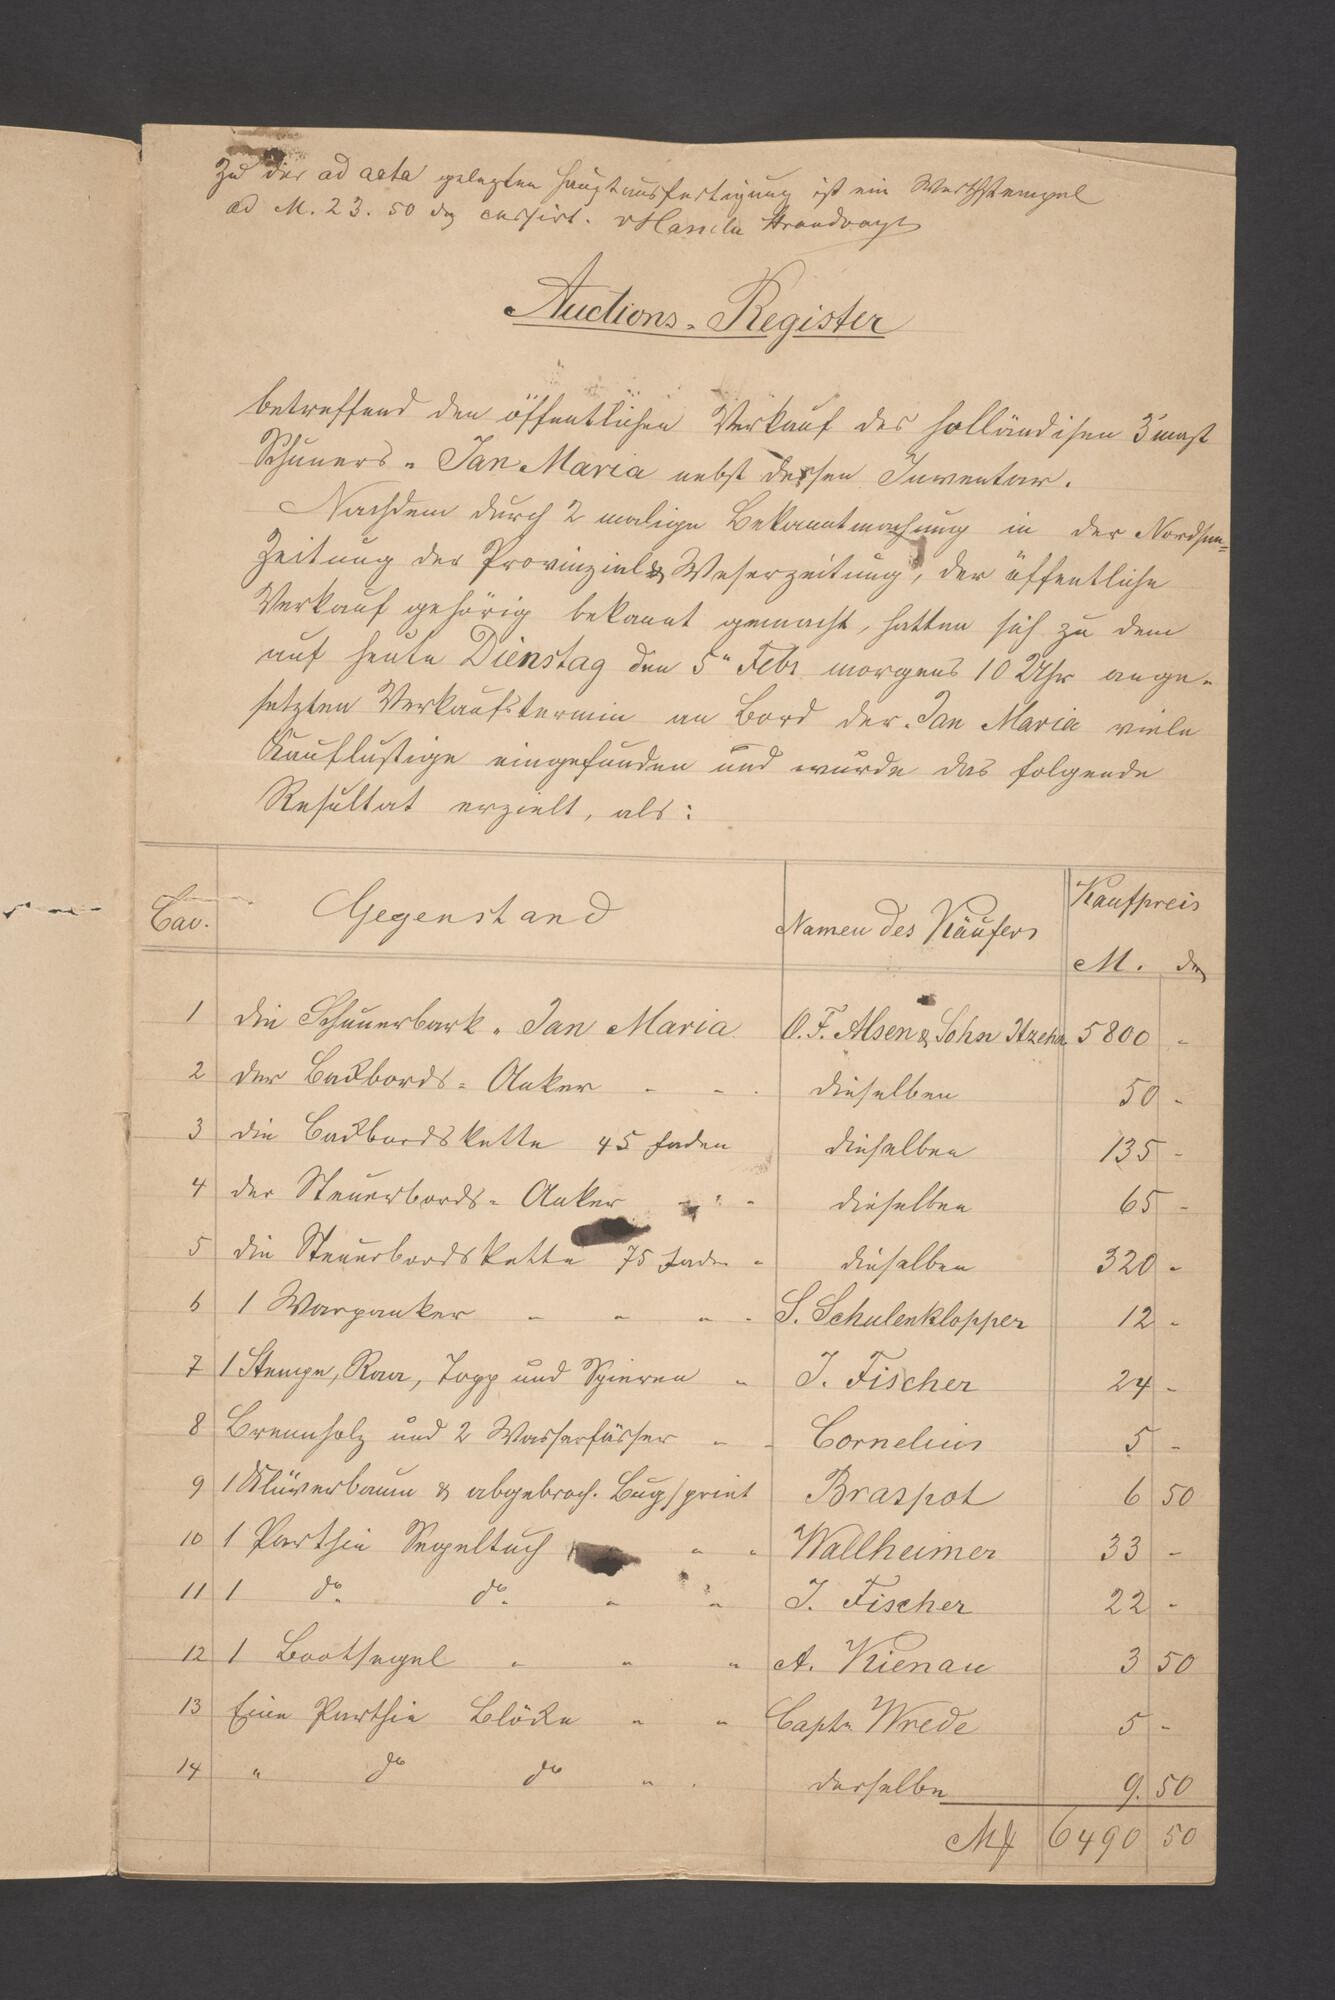 Zu der ad acta gelegten Hauptausfertigung ist ein Werthstempel
ad M. 23. 50 d cassirt. Strandvogt
Auctions-Register
betreffend den öffentlichen Verkauf des holländischen 3 mast
Schuners „ Jan Maria nebst dessen Inventar.
Nachdem durch 2 malige Bekanntmachung in der Nordsee-
Zeitung der Provinzial & Weserzeitung, der öffentliche
Verkauf gehörig bekannt gemacht, hatten sich zu dem
auf heute Dienstag den 5" Febr morgens 10 Uhr ange-
setzten Verkaufstermin an Bord der „Jan Maria viele
Kauflustige eingefunden und wurde das folgende
Resultat erzielt, als:
Cav. Gegenstand Namen des Käufers Kaufpreis
M. d
1 die Schunerbark „ Jan Maria O. F. Alsen & Sohn Itzehoe 5800 -
2 der Backbords-Anker - - . dieselben 50 -
3 die Backbordskette 45 Faden dieselben 135 -
4 der Steuerbords-Anker - " - dieselben 65 -
5 die Steuerbordskette 75 Faden - dieselben 320 -
6 1 Warpanker - - - - S. Schulenklopper 12 -
7 1 Stenge, Raa, Topp und Spieren - J. Fischer 24 -
8 Brennholz und 2 Wasserfässer - - Cornelius 5 -
9 1 Klüverbaum & abgebroch. Bugspriet Braspot 6 50
10 1 Parthie Segeltuch - - Wallheimer 33 -
11 1 do. do. - - J. Fischer 22 -
12 1 Bootsegel - - - A. Kienau 3 50
13 Eine Parthie Blöcke - - Captn Wrede 5 -
14 " do do - . derselbe 9. 50
M 6490 50